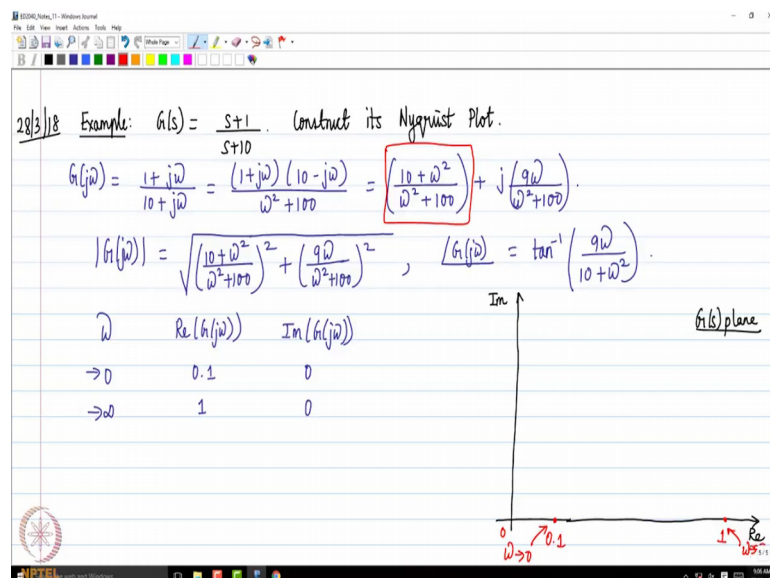 ED2040_Notes_11 - Windows Journal
File Edit View Insert Actions Tools Help
Whole Page
B I
28/3/18 Example: G(s) = (s+1)/(s+10). Construct its Nyquist Plot.
G(jω) = (1+jω)/(10+jω) = (1+jω)(10-jω)/(ω²+100) = ((10+ω²)/(ω²+100)) + j(9ω/(ω²+100)).
|G(jω)| = √(((10+ω²)/(ω²+100))² + (9ω/(ω²+100))²), ∠G(jω) = tan⁻¹(9ω/(10+ω²)).
ω Re(G(jω)) Im(G(jω))
→0 0.1 0
→∞ 1 0
Im
G(s) plane
0 0.1 1 Re
ω→0 ω→∞
5/5
NPTEL
9:06 AM